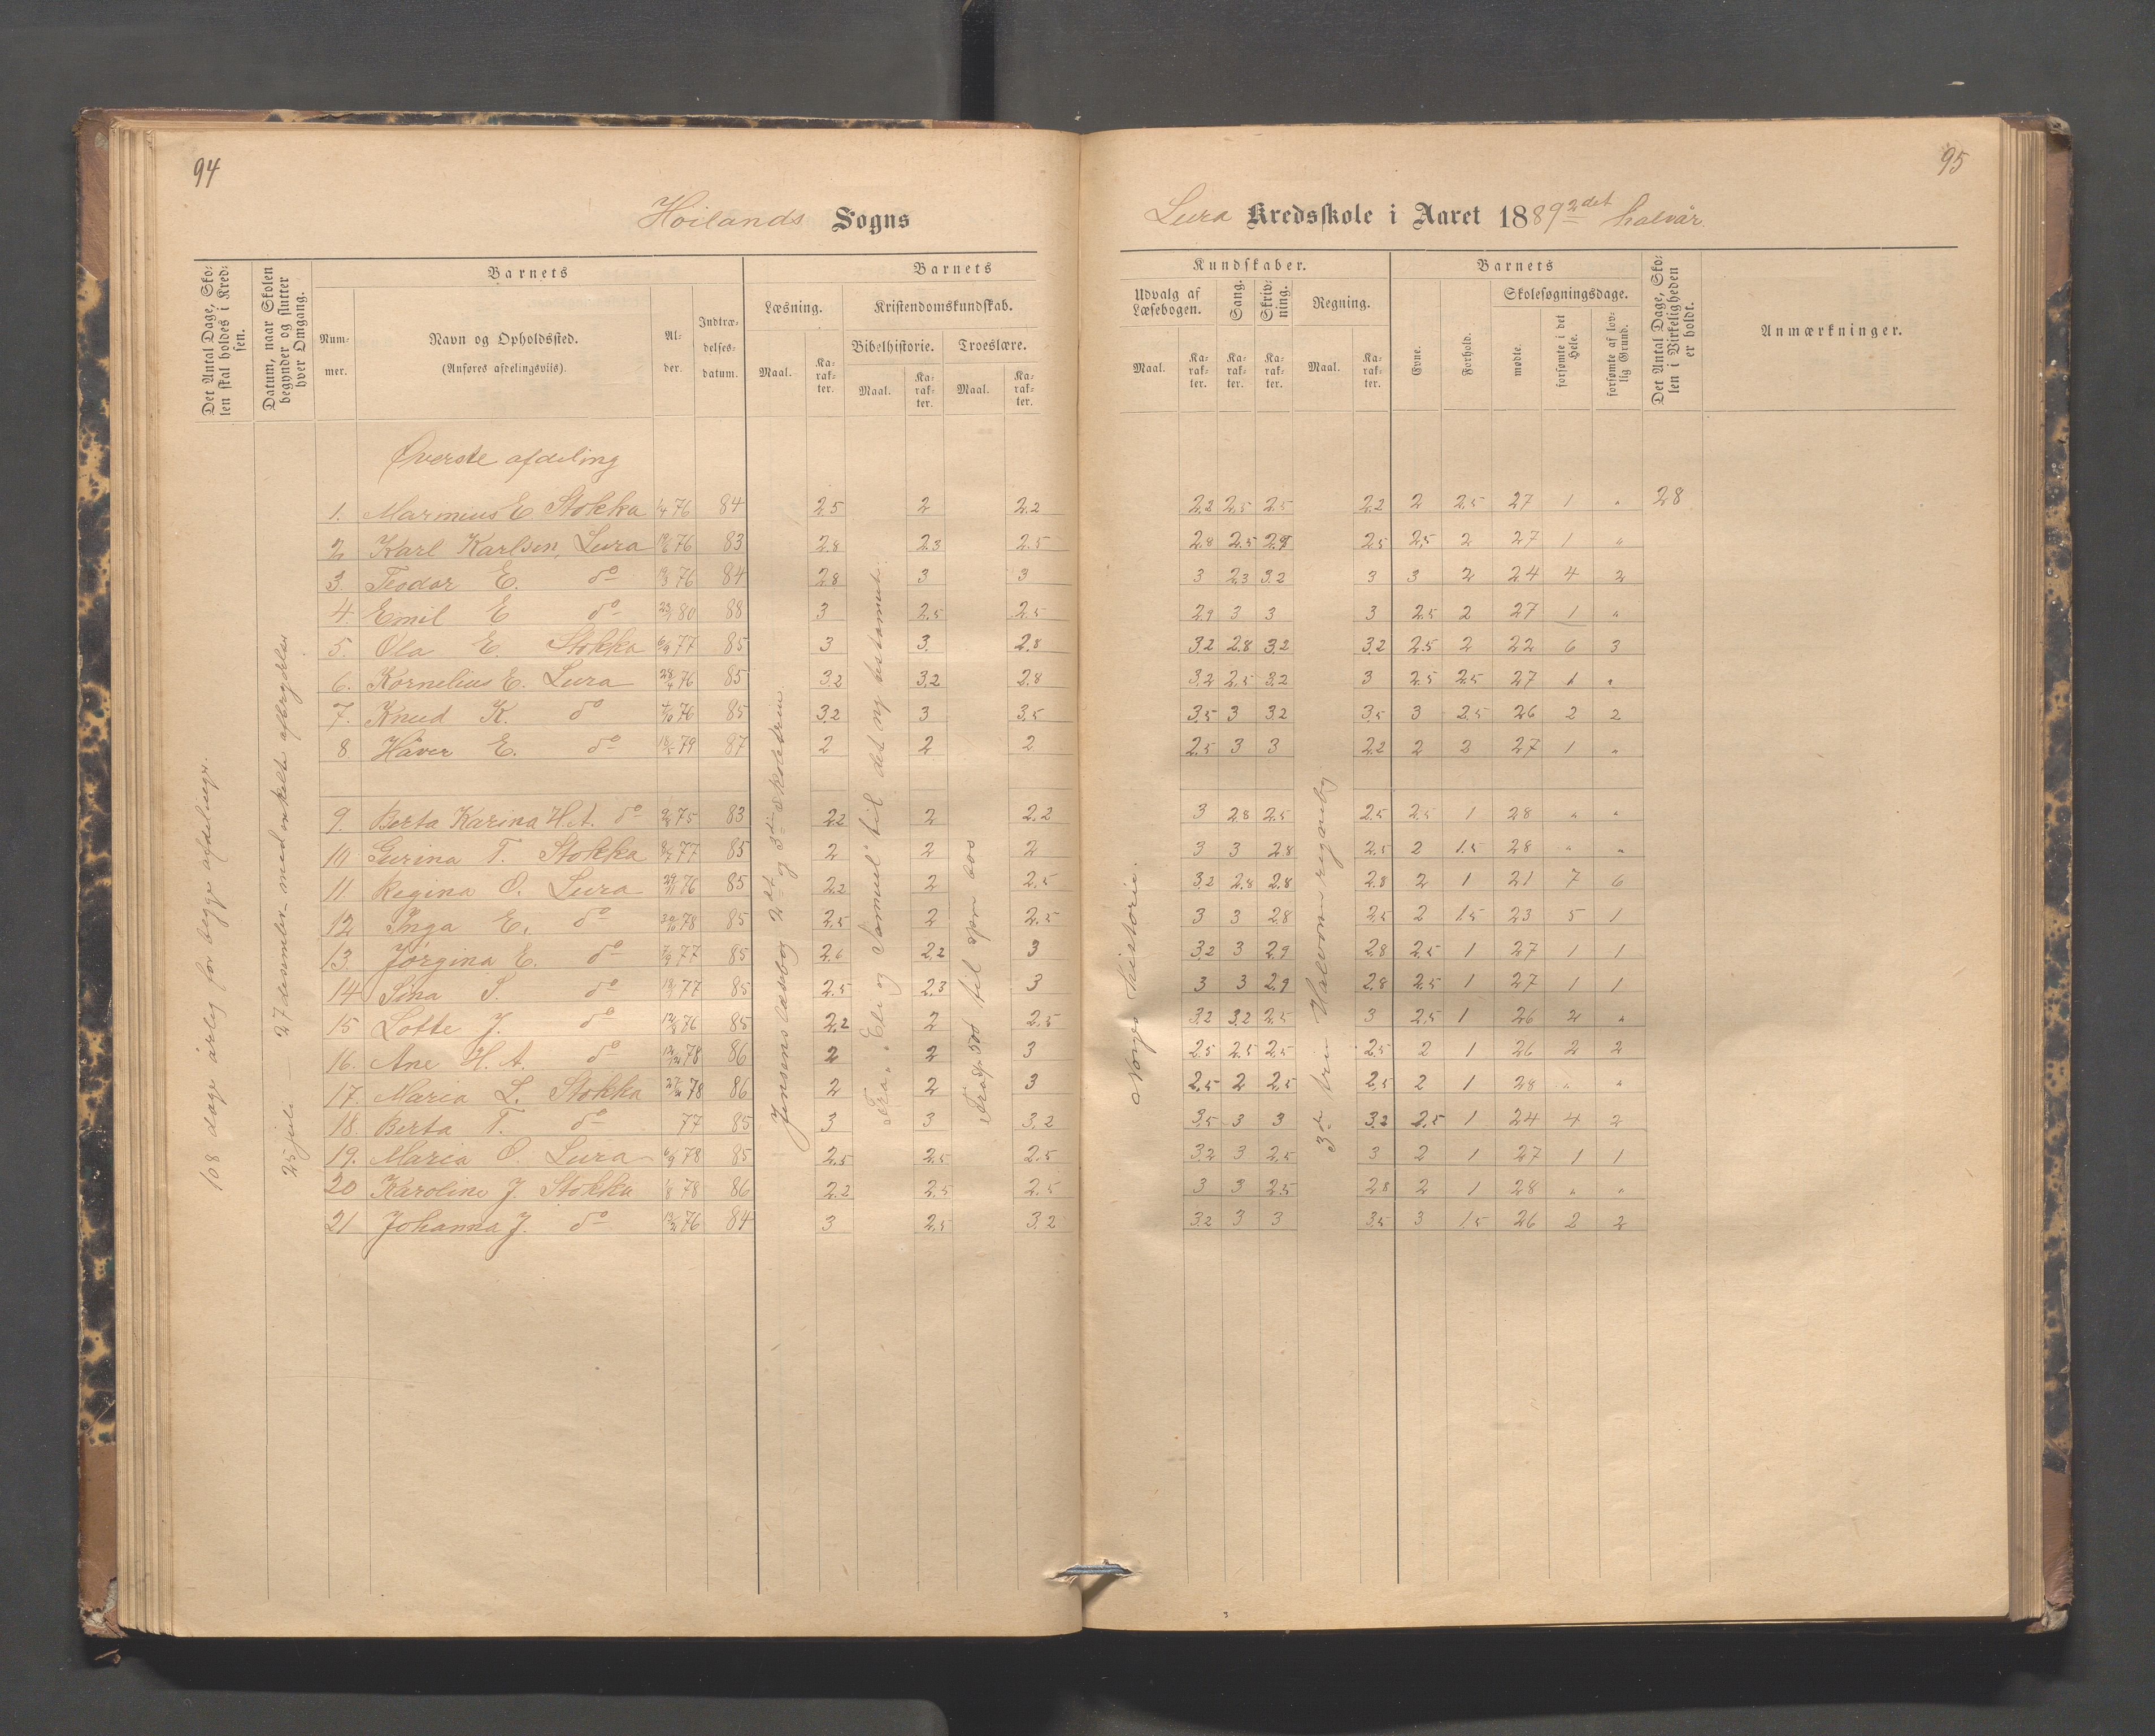 94
Höilands Sogns
Det Antal Dage, Skolen skal holdes i Kredsen.
Datum, naar Skolen begynder og slutter hver Omgang.
Barnets
Nummer.
Navn og Opholdssted.
(Anføres afdelingsviis).
Alder.
Indtrædelsesdatum.
Barnets
Læsning.
Kristendomskundskab.
Bibelhistorie.
Troeslære.
Maal. Karakter. Maal. Karakter. Maal. Karakter.
108 dage årlig for begge afdelinger.
25 juli — 27 desember med enkelte afbrydelser
Jensens læsebog 2det og 3die skoletrin
Fra „Eli og Samuel" til det ny testamente.
til spm 608
Øverste afdeling
1. Marinius E Stokka 76 84 2.5 2 2.2
2 Karl Karlsen, Lura 76 83 2.8 2.3 2.5
3. Teodor E. do 76 84 2.8 3 3
4 Emil E do 80 88 3 2.5 2.5
5. Ola E. Stokka 77 85 3 3. 2.8
6. Kornelius E. Lura 28/4 76 85 3.2 3.2 2.8
7. Knud K. do 76 85 3.2 3 3.5
8 Håver E. do 79 87 2 2 2
9. Berta Karina H.A. do 75 83 2.2 2 2.2
10 Gurina T. Stokka 77 85 2 2 2
11. Regina O. Lura 29/11 76 85 2.2 2 2.5
12 Inga E. do 78 85 2.5 2 2.5
13. Jørgina E. do 77 85 2.6 2.2 3
14 Sina S. do 77 85 2.5 2.3 3
15 Lotte J. do 76 85 2.2 2 2.5
16. Ane H. A. do 78 86 2 2 3
17. Maria L. Stokka 78 86 2 2 3
18. Berta T. do 77 85 3 3 3.2
19. Maria O. Lura 78 85 2.5 2.5 2.5
20 Karoline J Stokka 78 86 2.2 2.5 2.5
21 Johanna J. do 76 84 3 2.5 3.2
95
Lura Kredsskole i Aaret 1889 2det halvår.
Kundskaber.
Udvalg af Læsebogen.
Sang.
Skrivning.
Regning.
Maal. Karakter. Karakter. Karakter. Maal. Karakter.
Barnets
Evne.
Forhold.
Skolesøgningsdage.
mødte.
forsømte i det Hele.
forsømte af lovlig Grund.
Det Antal Dage, Skolen i Virkeligheden er holdt.
Anmærkninger.
Norges historie.
3die trin Halvorsens regnebog
2.2 2.5 2.5 2.2 2 2.5 27 1 „ 28
2.8 2.5 2.7 2.5 2.5 2 27 1 „
3 2.3 3.2 3 3 2 24 4 2
2.9 3 3 3 2.5 2 27 1 „
3.2 2.8 3.2 3.2 2.5 2 22 6 3
3.2 2.5 3.2 3 2.5 2.5 27 1 „
3.5 3 3.2 3.5 3 2.5 26 2 2
2.5 3 3 2.2 2 2 27 1 „
3 2.8 2.5 2.5 2.5 1 28 „ „
3 3 2.8 2.5 2 1.5 28 „ „
3.2 2.8 2.8 2.8 2 1 21 7 6
3 3 2.8 2.5 2 1.5 23 5 1
3.2 3 2.9 2.8 2.5 1 27 1 1
3 3 2.9 2.8 2.5 1 27 1 1
3.2 3.2 2.5 3 2.5 1 26 2 „
2.5 2.5 2.5 2.5 2 1 26 2 2
2.5 2 2.5 2.5 2 1 28 „ „
3.5 3 3 3.2 2.5 1 24 4 2
3.2 3 2.5 3 2 1 27 1 1
3 3 2.5 2.8 2 1 28 „ „
3.2 3 3 3.5 3 1.5 26 2 2